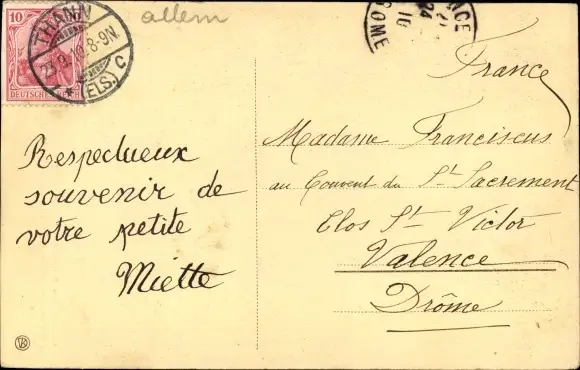 allem
10
THANN
23.9.10.8-9N.
* (ELS) C
DEUTSCHES REICH
VALENCE
24
10
DROME
France
Respectueux
souvenir de
votre petite
Miette
Madame Franciscus
au Couvent du St Sacrement
Clos St Victor
Valence
Drôme